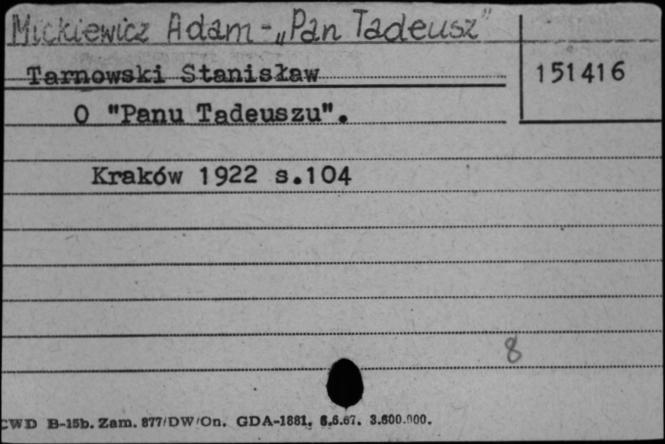 Mickiewicz Adam - „Pan Tadeusz"
Tarnowski Stanisław
151416
O "Panu Tadeuszu".
Kraków 1922 s.104
8
CWD B-15b. Zam. 877/DW/On. GDA-1881. 6.6.67. 3.600.000.